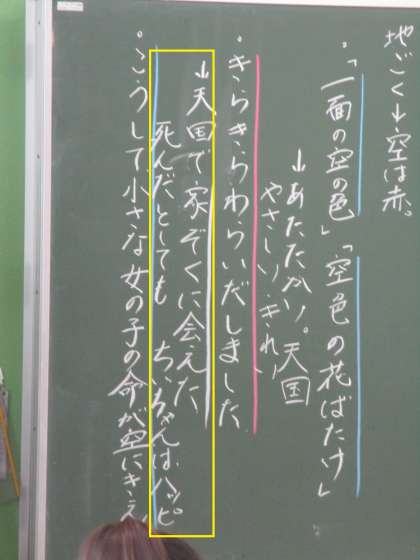 地ごく→空は赤。
。「一面の空の色」「空色の花ばたけ」
→あたたかい。天国
やさしい、きれい
。きらきらわらいだしました
→天国で家ぞくに会えた
死んだとしても ちいちゃんはハッピ
。こうして小さな女の子の命が空にきえ